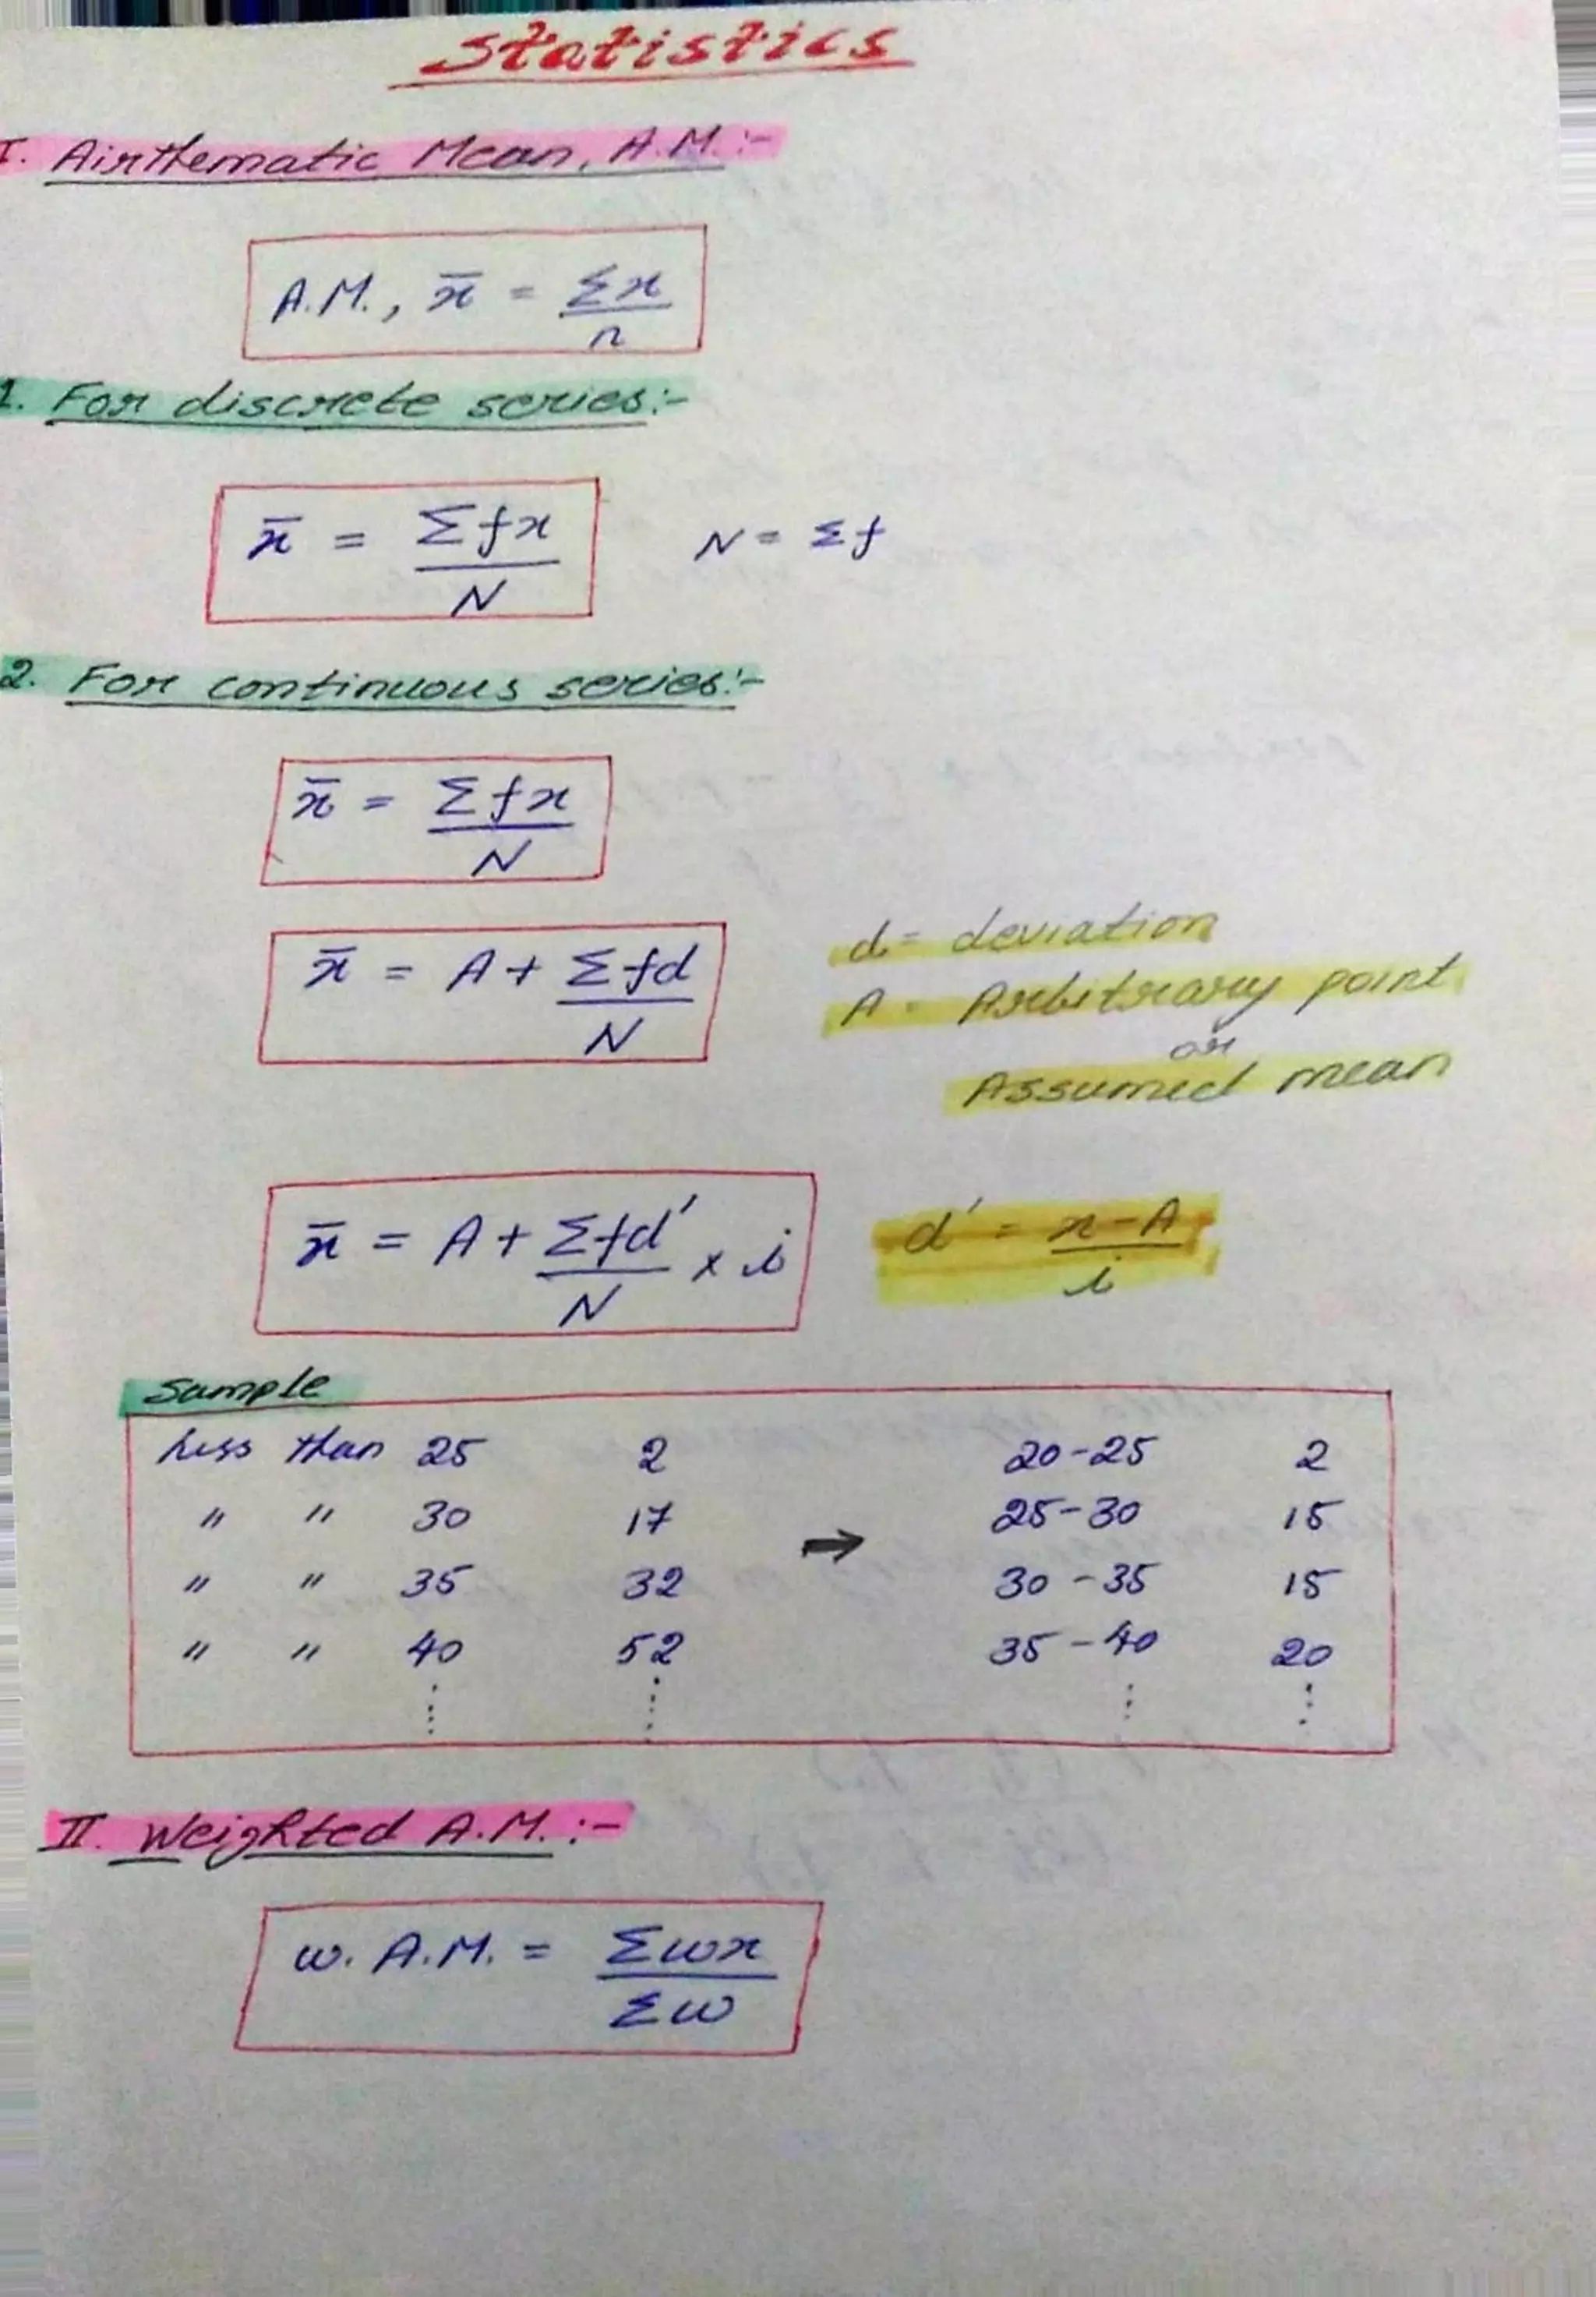 Statistics
I. Airthematic Mean, A.M. :-
A.M., x̄ = Σx/n
1. For discrete series:-
x̄ = Σfx/N N = Σf
2. For continuous series:-
x̄ = Σfx/N
x̄ = A + Σfd/N
d = deviation
A = Arbitrary point
or
Assumed mean
x̄ = A + Σfd'/N × i d' = x-A/i
Sample
Less than 25 2 20-25 2
" " 30 17 → 25-30 15
" " 35 32 30-35 15
" " 40 52 35-40 20
⋮ ⋮ ⋮ ⋮
II. Weighted A.M. :-
w. A.M. = Σwx/Σw